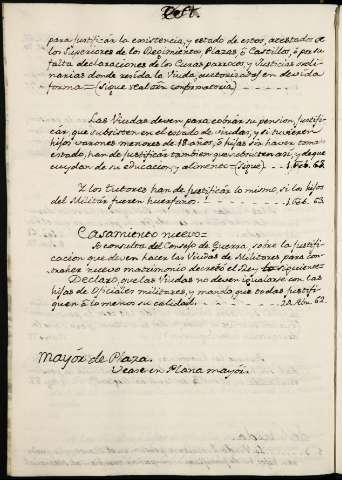 para justificar la existencia, y estado de estos, atestado de
los Superiores de los Regimientos, Plazas, ó Castillos, ó por su
falta declaraciones de los Curas parrocos, y Justicias ordi-
narias donde resida la Viuda, autorizadas en devida
forma= (Sigue Real orn. confirmatoria)
Las Viudas deven para cobrar su pension, justifi-
car, que subsisten en el estado de viudas, y si tuvieren
hijos varones menores de 18 años, ó hijas sin haver tomado
estado, han de justificar tambien que subsisten asi, y de que
cuydan de su educacion, y alimento= (Sigue) 1. Feb. 63.
Y los tutores han de justificar lo mismo, si los hijos
del Militar fueren huerfanos. 1. Feb. 63.
Casamiento nuevo=
A consulta del Consejo de Guerra, sobre la justifi-
cacion que deven hacer las Viudas de Militares para con-
traher nuevo matrimonio decretó el Rey lo siguiente=
Declaro, que las Viudas no deven igualarse con las
hijas de Oficiales militares, y mando que todas justifi-
quen á lo menos su calidad. 62.
Mayór de Plaza.
Vease en Plana mayór.